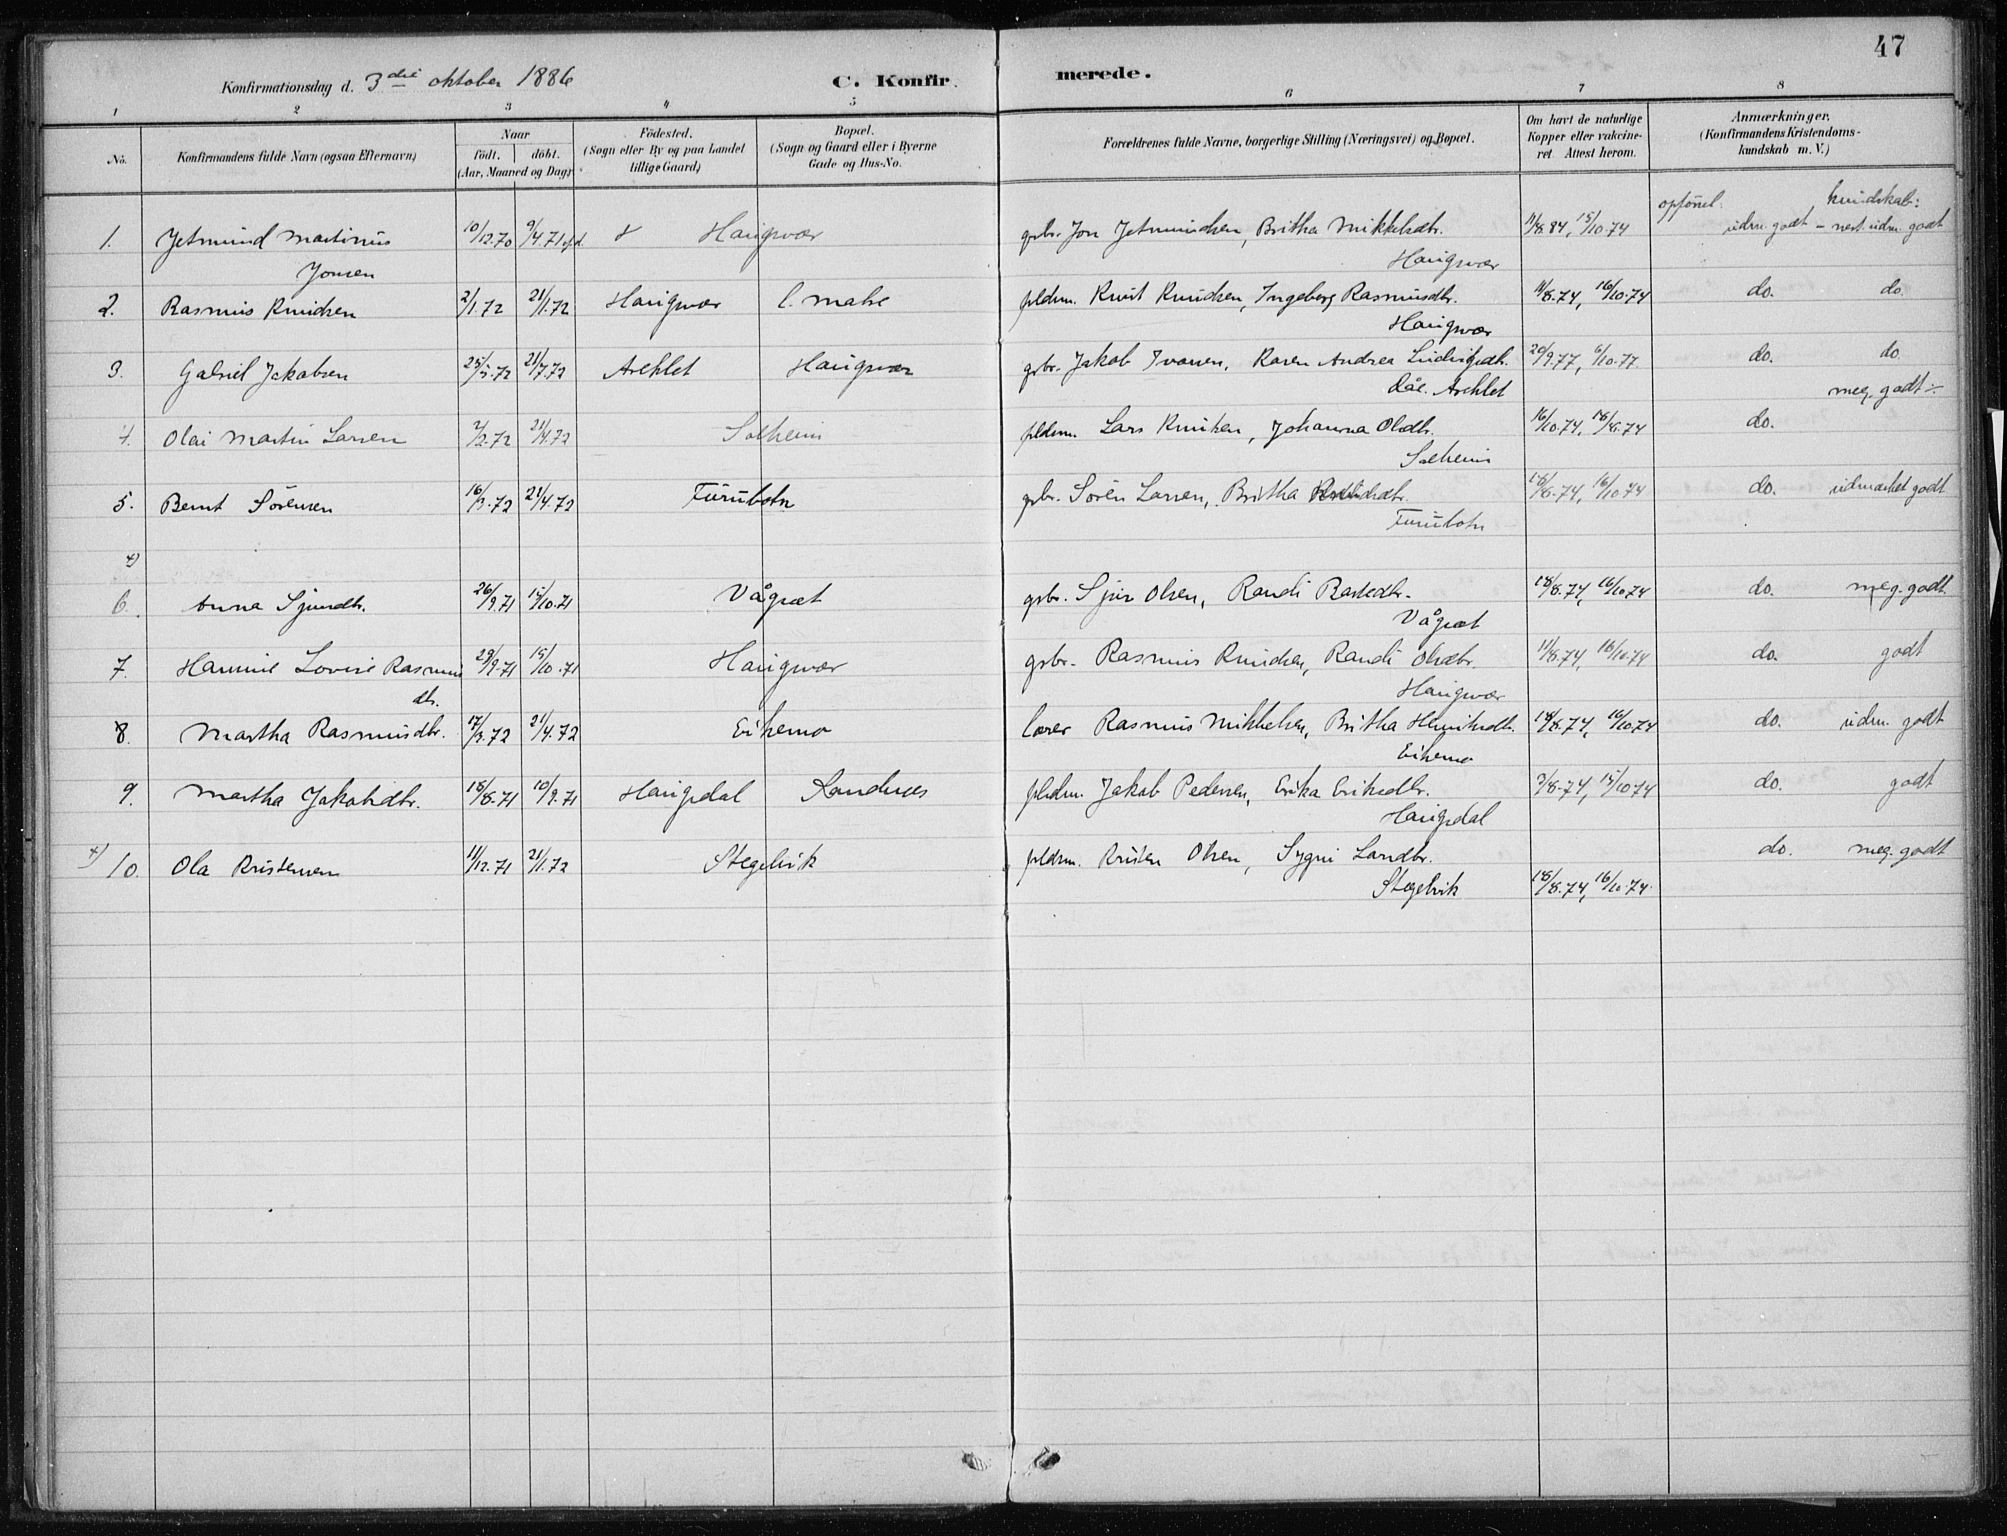 47
Konfirmationsdag d. 3die oktober 1886
C. Konfir
merede.
1 2 3 4 5 6 7 8
No. Konfirmandens fulde Navn (ogsaa Efternavn)
Naar
födt. döbt.
(Aar, Maaned og Dag)
Födested.
(Sogn eller By og paa Landet
tillige Gaard)
Bopæl.
(Sogn og Gaard eller i Byerne
Gade og Hus-No.
Forældrenes fulde Navne, borgerlige Stilling (Næringsvei) og Bopæl.
Om havt de naturlige
Kopper eller vakcine-
ret. Attest herom.
Anmærkninger.
(Konfirmandens Kristendoms-
kundskab m. V.)
opförsel. kundskab:
1. Jetmund Martinus 10/12.70 9/4.71 Haugsvær gsbr. Jon Jetmundsen, Britha Mikkelsdtr. 11/8.84, 15/10.74 udm. godt - nest udm. godt
Jonsen Haugsvær
2. Rasmus Knudsen 2/1.72 21/1.72 Haugsvær l. Matre pldsm. Knut Knudsen, Ingeborg Rasmusdtr. 11/8.74, 16/10.74 do. do.
Haugsvær
3. Gabriel Jakobsen 25/5.72 21/7.72 Haugsvær gbr. Jakob Ivarsen, Karen Andrea Ludvigsdtr. 20/9.77, 6/10.77 do. do
meg. godt
4. Olai Martin Larsen 2/2.72 21/4.72 Solheim pldsm. Lars Knutsen, Johanna Olsdtr. 16/10.74, 18/8.74 do.
Solheim
5. Bernt Sörensen 16/3.72 21/4.72 Furubotn gbr. Sören Larsen, Britha 18/8.74, 16/10.74 do. udmærket godt
Furubotn
6. Anna Sjursdtr. 26/9.71 15/10.71 Vågsæt gsbr. Sjur Olsen, Randi 18/8.74, 16/10.74 do. meg. godt.
Vågsæt
7. Hannine Lovise Rasmus 29/9.71 15/10.71 Haugsvær gsbr. Rasmus Knudsen, Randi Olsdtr. 11/8.74, 16/10.74 do. godt
dtr. Haugsvær
8. Martha Rasmusdtr. 17/3.72 21/4.72 Eikemo lærer Rasmus Mikkelsen, Britha Henriksdtr. 18/8.74, 16/10.74 do. udm. godt
Eikemo
9. Martha Jakobsdtr. 18/8.71 10/9.71 Haugsdal Sandnes pldsm. Jakob Pedersen, Erika Eriksdtr. 3/8.74, 15/10.74 do. godt
Haugsdal
10. Ola Kristensen 11/12.71 21/1.72 Stegelvik pldsm. Kristen Olsen, Sygni Larsdtr. do. meg. godt
Stegelvik 18/8.74, 16/10.74.